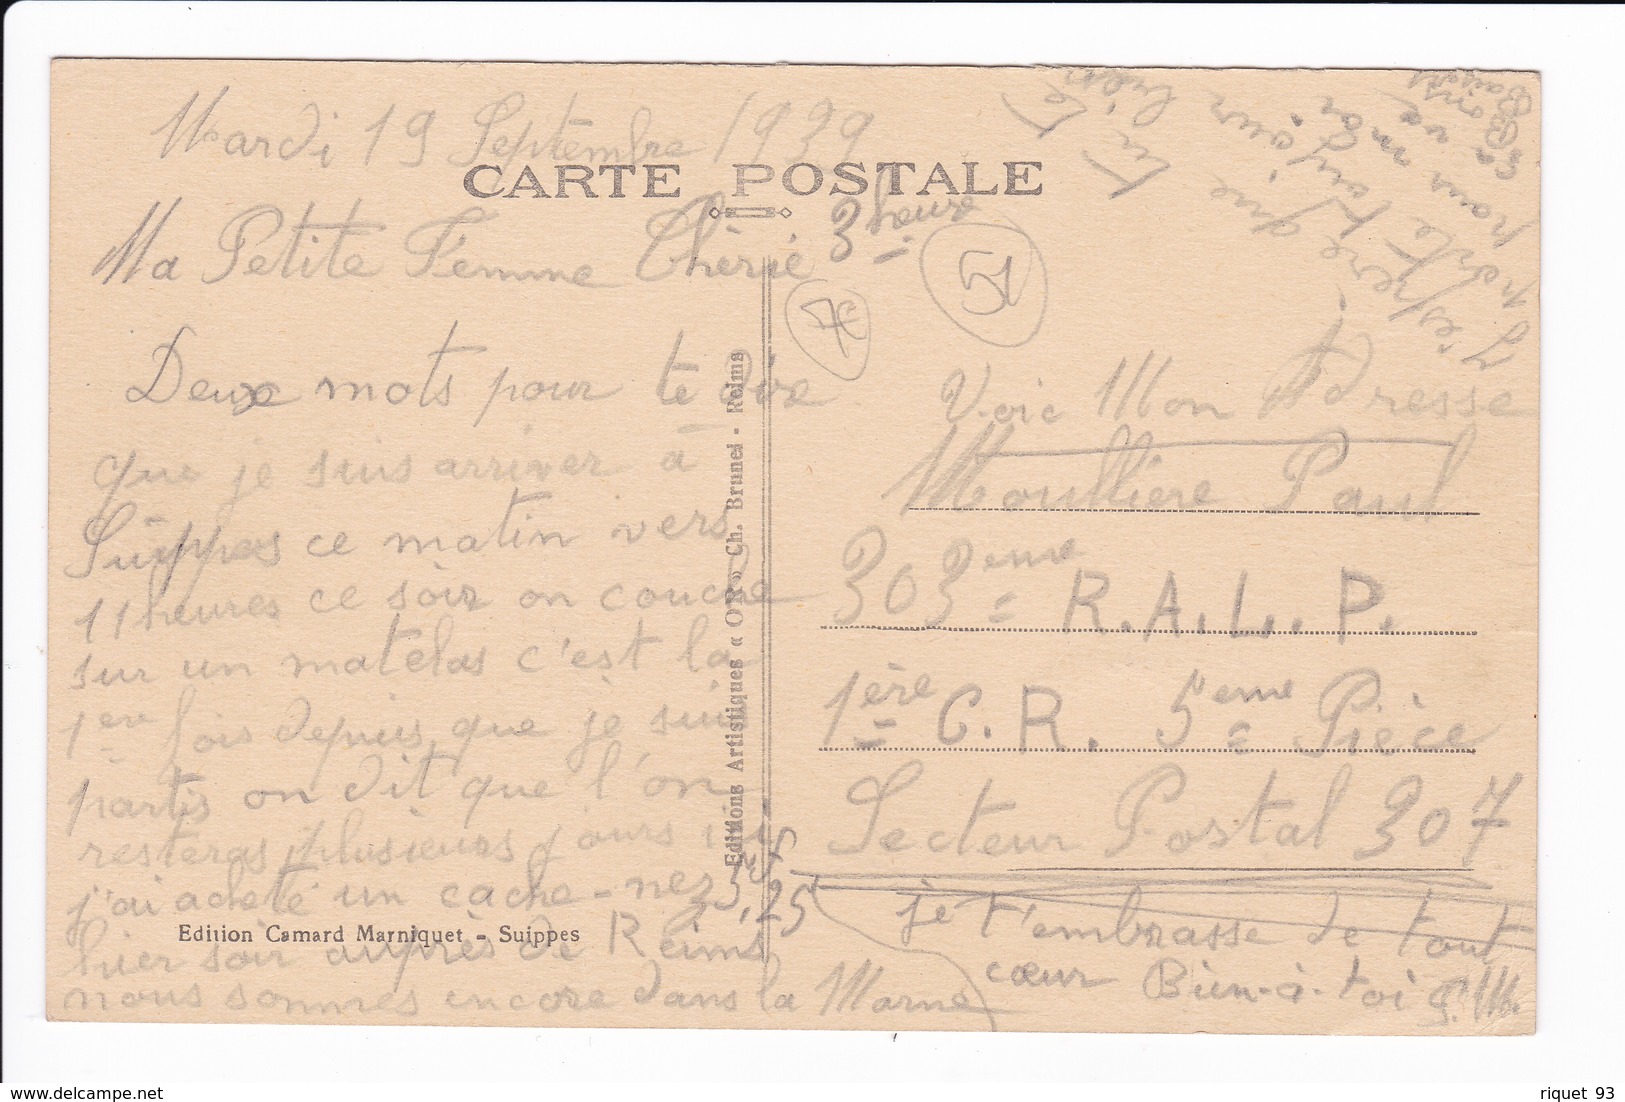 Mardi 19 Septembre 1939
CARTE POSTALE
3 heure
Ma Petite Femme Chèrie
Deux mots pour te dire
que je suis arriver à
Suippes ce matin vers
11 heures ce soir on couche
sur un matelas c'est la
1ere fois depuis que je suis
partis on dit que l'on
resteras plusieurs jours ici
j'ai acheté un cache-nez 3f,25
hier soir auprès de Reims
nous sommes encore dans la Marne
Edition Camard Marniquet - Suippes
Editions Artistiques « OR » Ch. Brunel - Reims
7€
51
J'espère que
toujour
Voic Mon Adresse
Moullière Paul
303eme R.A.L.P.
1ère C.R. 5eme Pièce
Secteur Postal 307
je t'embrasse de tout
cœur Bien-à-toi P.M.
riquet 93